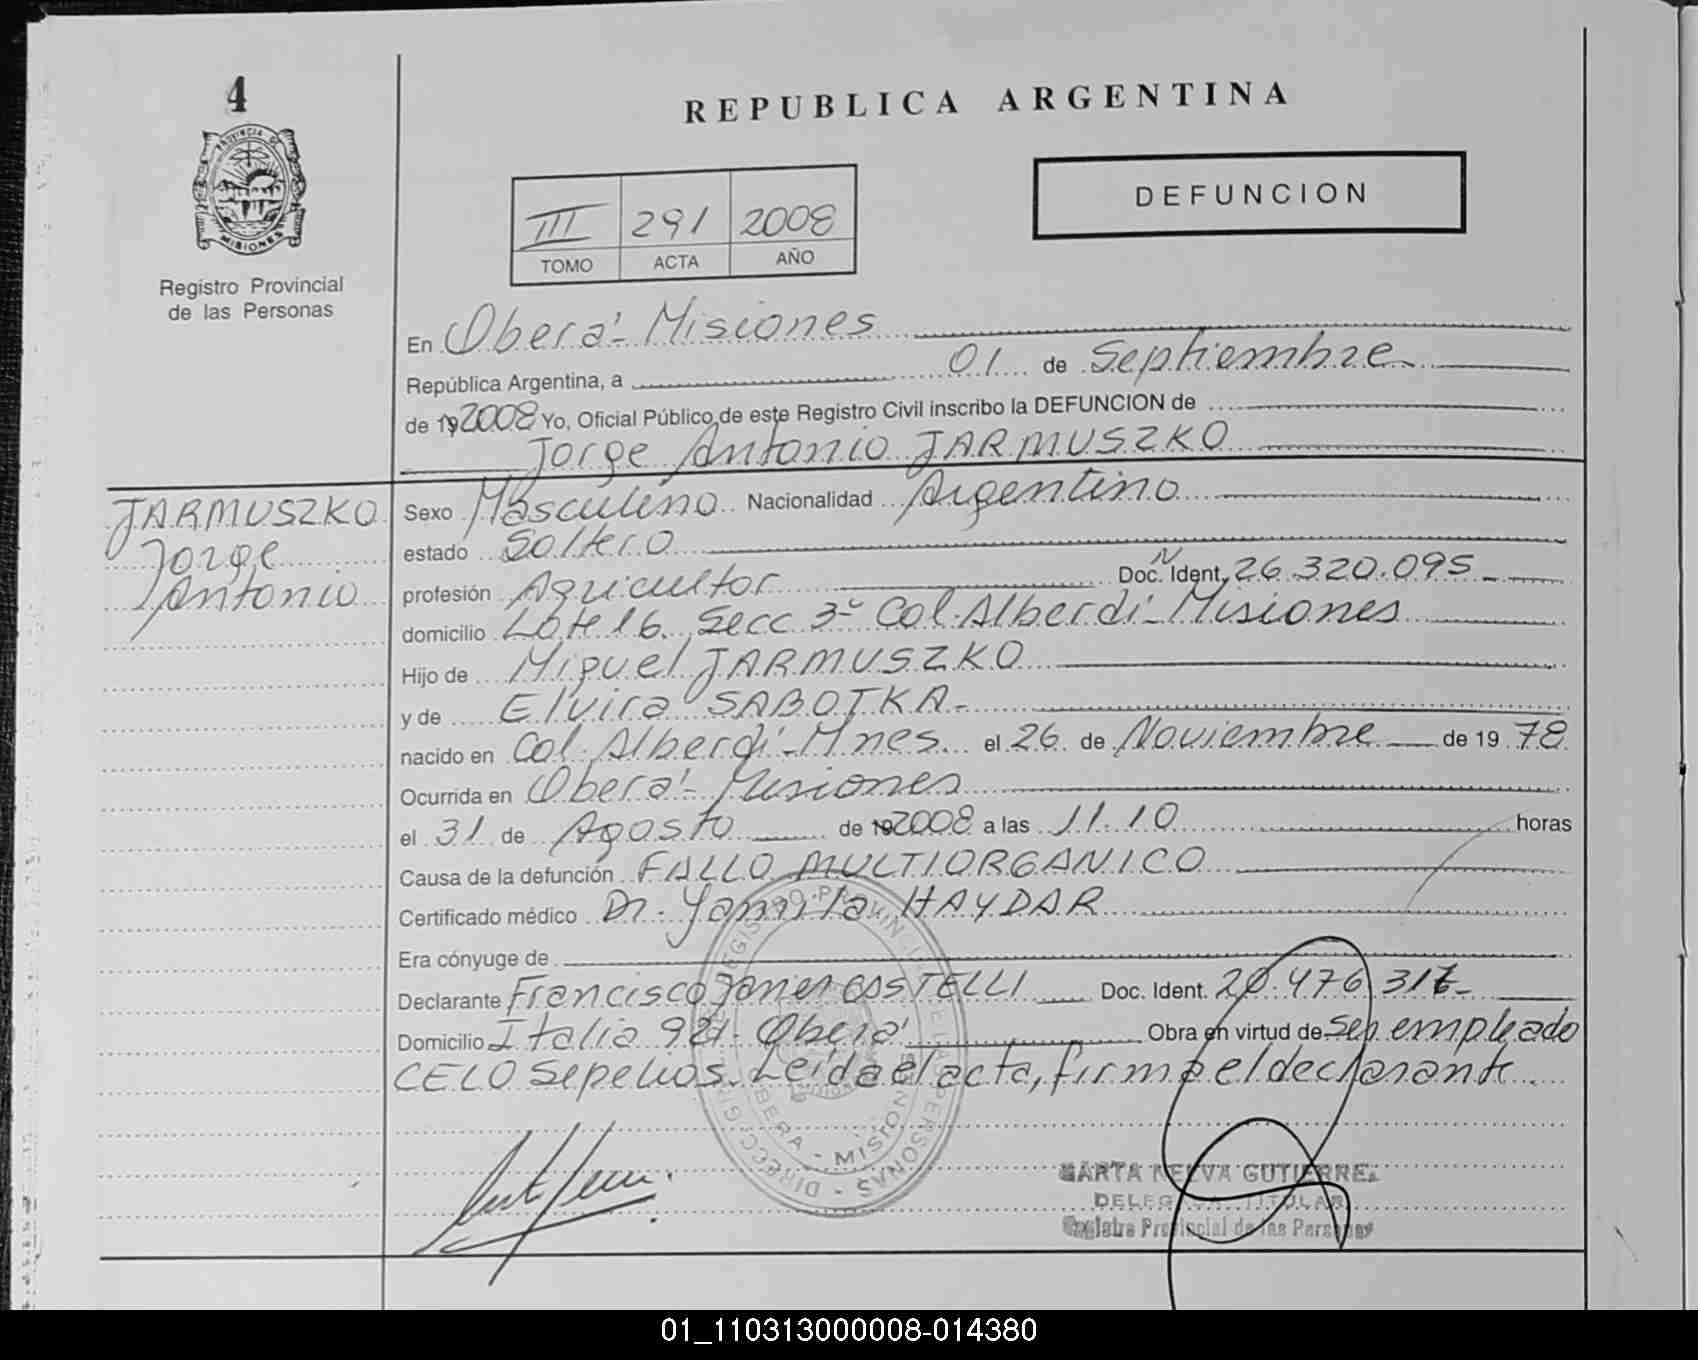 4
PROVINCIA DE
MISIONES
Registro Provincial
de las Personas
REPUBLICA ARGENTINA
III 291 2008
TOMO ACTA AÑO
DEFUNCION
En Oberá - Misiones
República Argentina, a 01 de Septiembre
de 19 2008 Yo, Oficial Público de este Registro Civil inscribo la DEFUNCION de
Jorge Antonio JARMUSZKO
JARMUSZKO
Jorge
Antonio
Sexo Masculino Nacionalidad Argentino
estado Soltero
profesión Agricultor Doc. Ident. N 26.320.095
domicilio Lote 16 Secc 3ª Col. Alberdi - Misiones
Hijo de Miguel JARMUSZKO
y de Elvira SABOTKA.-
nacido en Col. Alberdi - Mnes. el 26 de Noviembre de 19 78
Ocurrida en Oberá - Misiones
el 31 de Agosto de 19 2008 a las 11.10 horas
Causa de la defunción FALLO MULTIORGANICO
Certificado médico Dr. Yamila HAYDAR
Era cónyuge de
Declarante Francisco Javier CASTELLI Doc. Ident. 20.476.317-
Domicilio Italia 921 - Oberá Obra en virtud de Ser empleado
CELO Sepelios. Leída el acta, firma el declarante
DIRECC. GRAL. REGISTRO PROVINCIAL DE LAS PERSONAS -
OBERA - MISIONES
MARTA NELVA GUTIERREZ
DELEGADA TITULAR
Registro Provincial de las Personas
01_110313000008-014380